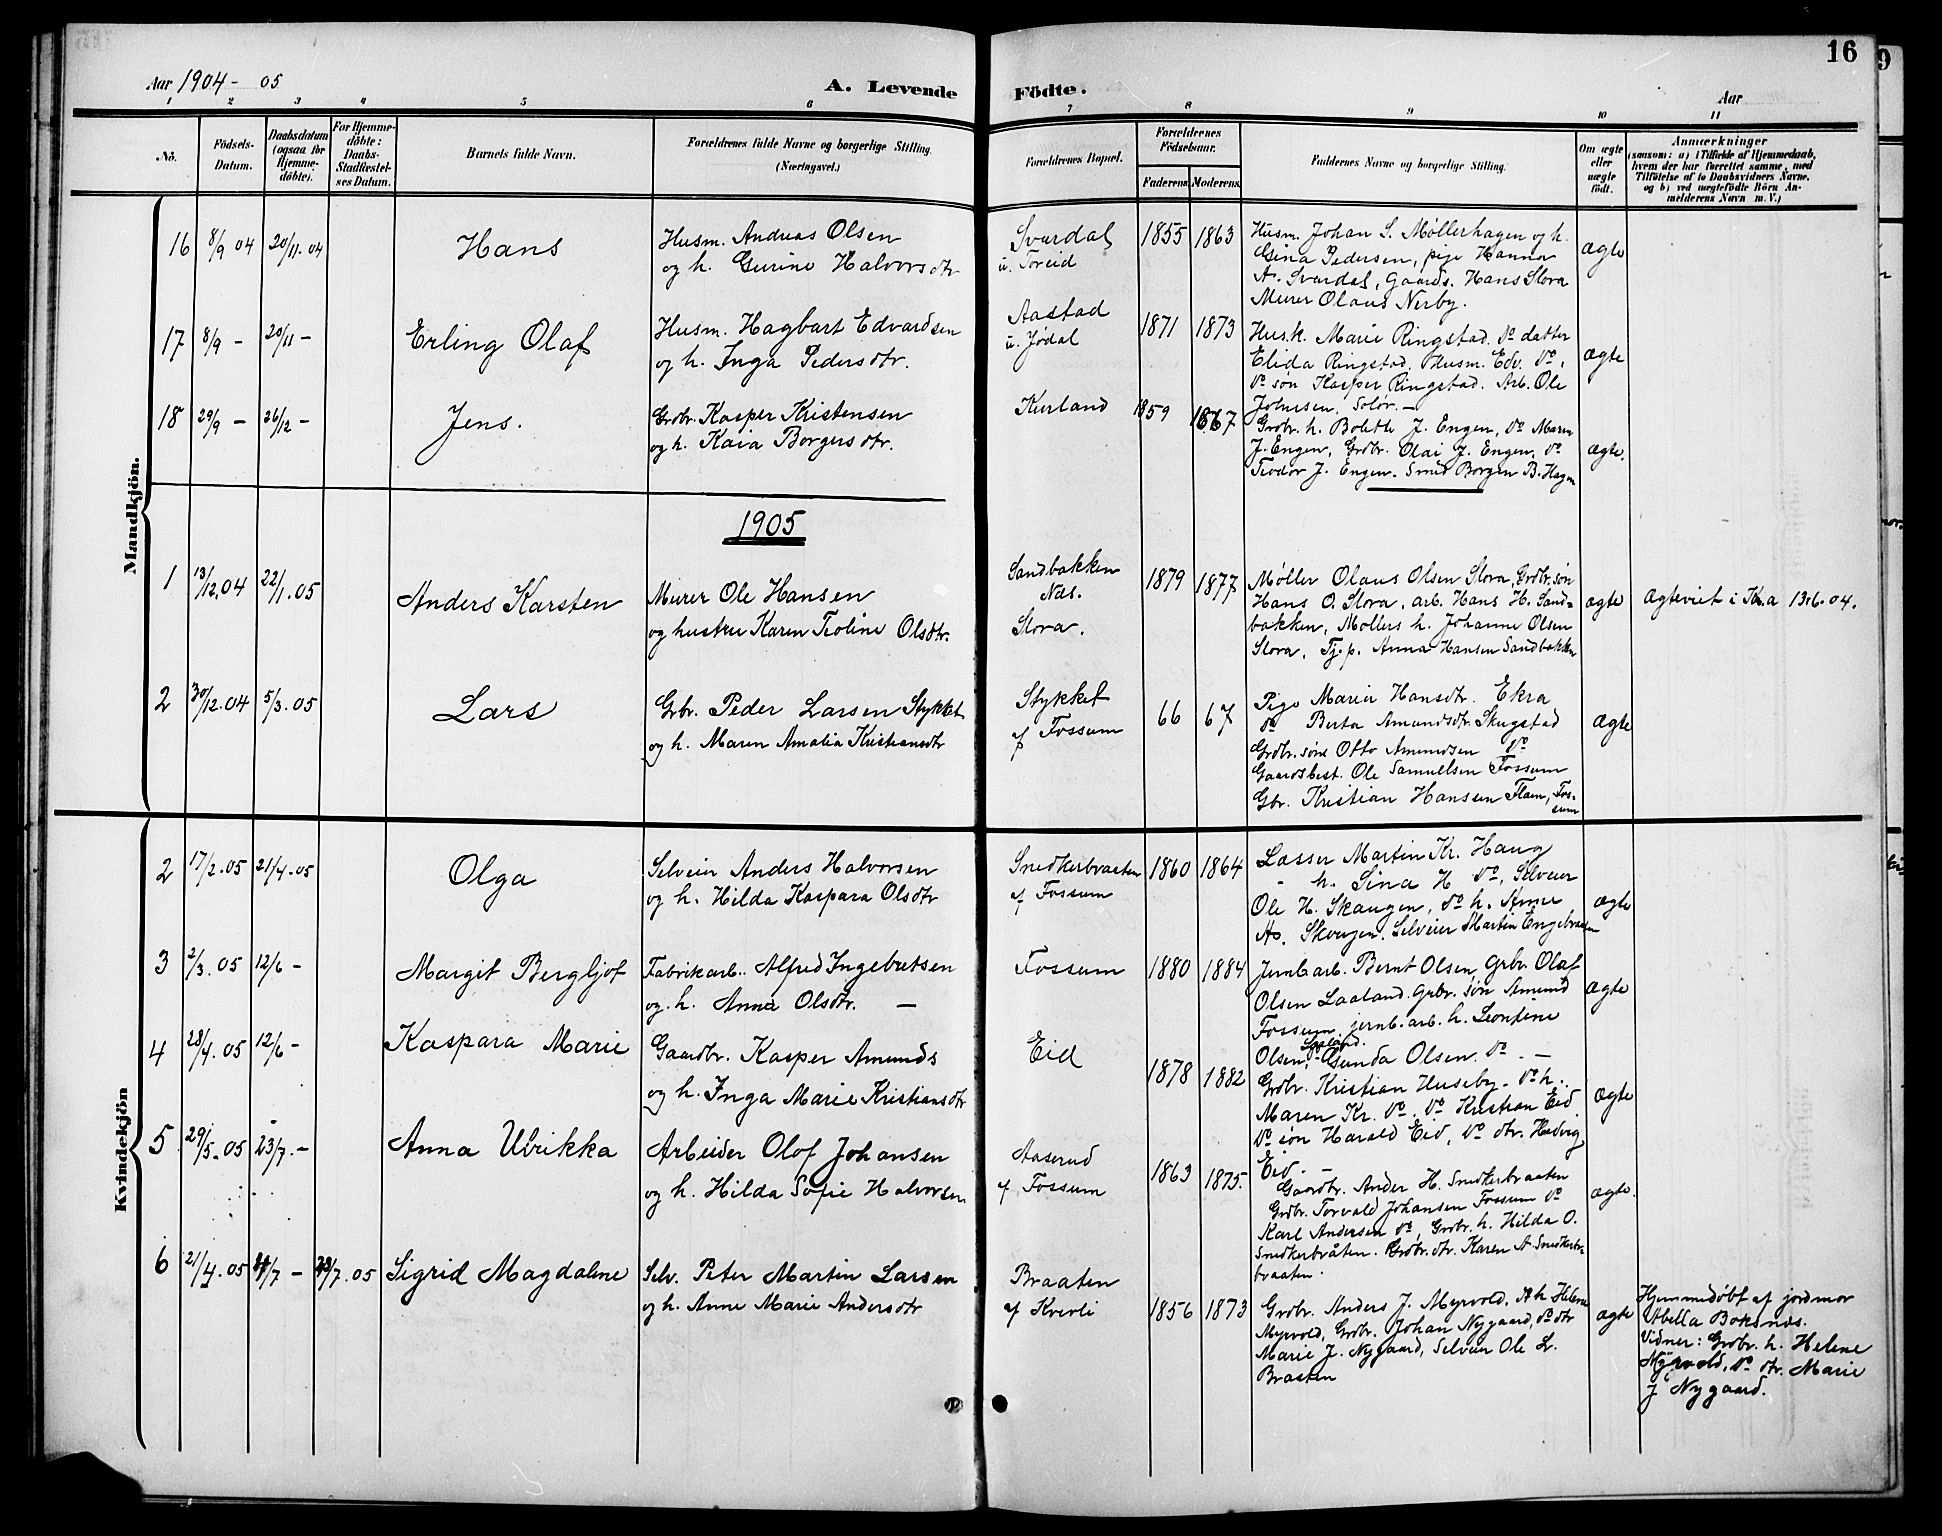 Aar 1904 - 05
A. Levende
Födte.
Aar
16
9
1 2 3 4 5 6 7 8 9 10 11
No.
Födsels-
Datum.
Daabsdatum
(ogsaa for
Hjemme-
döbte).
For Hjemme-
döbte:
Daabs-
Stadfæstel-
ses Datum.
Barnets fulde Navn.
Forældrenes fulde Navne og borgerlige Stilling.
(Næringsvei.)
Forældrenes Bopæl.
Forældrenes
Födselsaar.
Faderens. Moderens.
Faddernes Navne og borgerlige Stilling.
Om ægte
eller
uægte
födt.
Anmærkninger
(saasom: a) i Tilfælde af Hjemmedaab,
hvem der har forrettet samme, med
Tilföielse af to Daabsvidners Navne,
og b) ved uægtefödte Börn An-
melderens Navn m. V.)
Mandkjön.
16 8/9 04 20/11.04 Hans
Husm. Andreas Olsen
og h. Gurine Halvorsdtr
Svardal
u. Toreid
1855 1863
Husm. Johan S. Møllerhagen og h.
Gina Pedersen, pige Hanna
A. Svardal, Gaards. Hans Slora
Murer Olaus Nerby.
ægte
17 8/9 - 20/11 - Erling Olaf
Husm. Hagbart Edvardsen
og h. Inga Pedersdtr.
Aastad
u. Jødal
1871 1873
Husk. Marie Ringstad. do datter
Elida Ringstad. Husm. Edv. do,
do søn Kasper Ringstad. Arb. Ole
Johnsen, Solør. -
ægte
18 29/9 - 26/12 - Jens.
Grdbr. Kasper Kristensen
og h. Kaia Borgersdtr.
Kurland
1859 1867
Grdbr. h. Bolette J. Engen, do Maren
J. Engen, Grdbr. Olai J. Engen, do
Teodor J. Engen. Smed Borgen B. Hagen
ægte.
1905
1 13/12.04 22/1.05 Anders Karsten
Murer Ole Hansen
og hustru Karen Teoline Olsdtr.
Sandbakken
Næs.
Slora.
1879 1877
Møller Olaus Olsen Slora, Grdbr. søn
Hans O. Slora, arb. Hans H. Sand=
bakken, Møllers h. Johanne Olsen
Slora, Tj.p. Anna Hansen Sandbakken
ægte
Ægteviet i Kr.a 13.6.04.
2 30/12.04 5/3.05 Lars
Grbr. Peder Larsen Stykket
og h. Maren Amalia Kristiansdtr
Stykket
af Fossum
66 67
Pige Marie Hansdtr. Ekra
do Berta Amundsdtr. Skugstad
Grdbr. søn Otto Amundsen do
Gaardsbest. Ole Samuelsen Fossum
Gbr. Kristian Hansen Flæn, Fos-
sum
ægte
Kvindekjön
2 17/2.05 21/4.05 Olga
Selveier Anders Halvorsen
og h. Hilda Kaspara Olsdtr
Snedkerbraaten
af Fossum
1860 1864
Læsser Martin Kr. Haug
- h. Sina H do, Selveier
Ole H. Skaugen, do h. Anne
As. Skougen. Selveier Martin Engebraaten
ægte
3 2/3.05 12/6 - Margit Bergljot
Fabrikarb. Alfred Ingebretsen
og h. Anna Olsdtr. -
Fossum
1880 1884
Jernb arb. Bernt Olsen, Grbr. Olaf
Olsen Laaland. Grbr. søn Amund
Fossum, jernb. arb. h. Leontine
Olsen, Gunda Olsen. do. -
ægte
4 28/4.05 12/6 - Kaspara Marie
Gaardbr. Kasper Amunds
og h. Inga Marie Kristiansdtr
Eid
1878 1882
Grdbr. Kristian Huseby. do h.
Maren Kr. do. do Kristian Eid
do søn Harald Eid, do dtr. Hedvig
Eid. -
ægte
5 29/5.05 23/7.- Anna Ulrikka
Arbeider Olof Johansen
og h. Hilda Sofie Halvorsen
Aaserud
af Fossum
1863 1875.
Gaardbr. Ander H. Snedkerbraaten
Grdbr. Torvald Johansen Fossum do
Karl Andersen do, Grdbr. h. Hilda O.
Snedkerbråten. Grdbr. dtr. Karen A. Snedkerbr=
braaten.
ægte.
6 21/4.05 /7 - /7.05 Sigrid Magdalene
Selv. Peter Martin Larsen
og h. Anne Marie Andersdtr
Braaten
af Kverli
1856 1873
Grdbr. Anders J. Myrvold, do h Helene
Myrvold, Grdbr. Johan Nygaard, do dtr
Marie J. Nygaard, Selveier Ole L.
Braaten
ægte
Hjemmedøbt af jordmor
Abella Boksnæs.
Vidner: Grdbr. h. Helene
Myrvold, do dtr. Marie
J Nygaard.